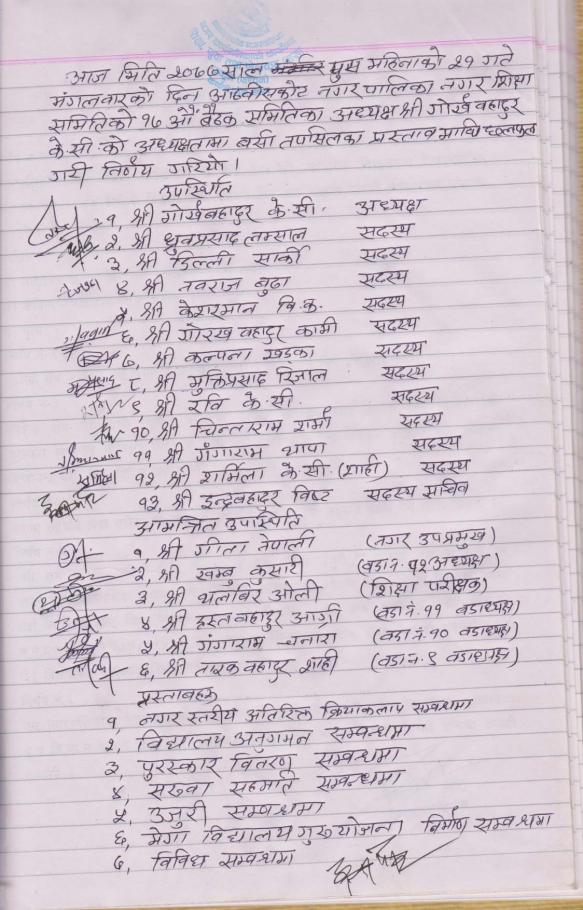 आज मिति २०७७ साल पुस महिनाको २१ गते
मंगलवारको दिन आठबीसकोट नगरपालिका नगर शिक्षा
समितिको १७ औं बैठक समितिका अध्यक्ष श्री गोर्खबहादुर
के.सी. को अध्यक्षतामा बसी तपसिलका प्रस्ताव माथि छलफल
गरी निर्णय गरियो ।
उपस्थिति
१, श्री गोर्खबहादुर के.सी. अध्यक्ष
२, श्री ध्रुवप्रसाद लम्साल सदस्य
३, श्री डिल्ली सार्की सदस्य
४, श्री नवराज बुढा सदस्य
५, श्री केशरमान वि.क. सदस्य
६, श्री गोरख बहादुर कामी सदस्य
७, श्री कल्पना खड्का सदस्य
८, श्री मुक्तिप्रसाद रिजाल सदस्य
९, श्री रवि के.सी. सदस्य
१०, श्री चिन्ताराम शर्मा सदस्य
११, श्री गंगाराम थापा सदस्य
१२, श्री शर्मिला के.सी. (शाही) सदस्य
१३, श्री इन्द्रबहादुर विष्ट सदस्य सचिव
आमन्त्रित उपस्थिति
१ श्री गीता नेपाली (नगर उपप्रमुख)
२, श्री खम्बु कुसारी (वडा नं. १२ अध्यक्ष)
३, श्री थलबिर ओली (शिक्षा परीक्षक)
४, श्री हस्तबहादुर आग्री (वडा नं. ११ वडाध्यक्ष)
५, श्री गंगाराम चनारा (वडा नं. १० वडाध्यक्ष)
६, श्री तारक बहादुर शाही (वडा नं. ९ वडाध्यक्ष)
प्रस्तावहरु
१, नगर स्तरीय अतिरिक्त क्रियाकलाप सम्बन्धमा
२, विद्यालय अनुगमन सम्बन्धमा
३, पुरस्कार वितरण सम्बन्धमा
४, सरुवा सहमति सम्बन्धमा
५, उजुरी सम्बन्धमा
६, मेगा विद्यालय गुरुयोजना निर्माण सम्बन्धमा
७, विविध सम्बन्धमा